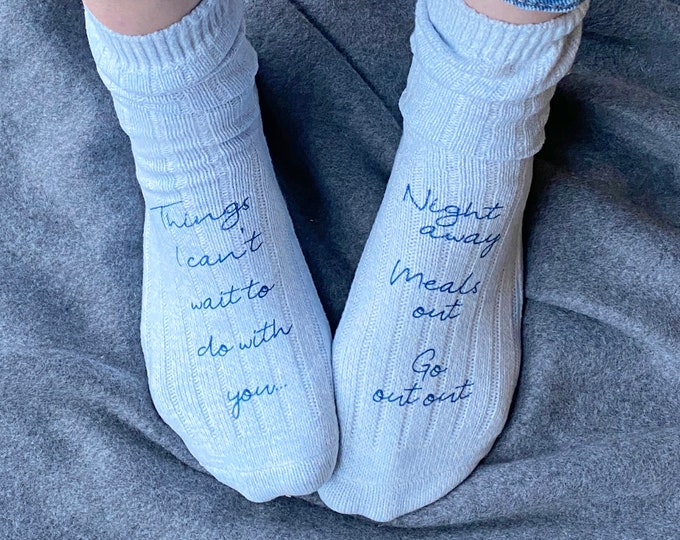 Things
I can't
wait to
do with
you...
Night
away
Meals
out
Go
out out